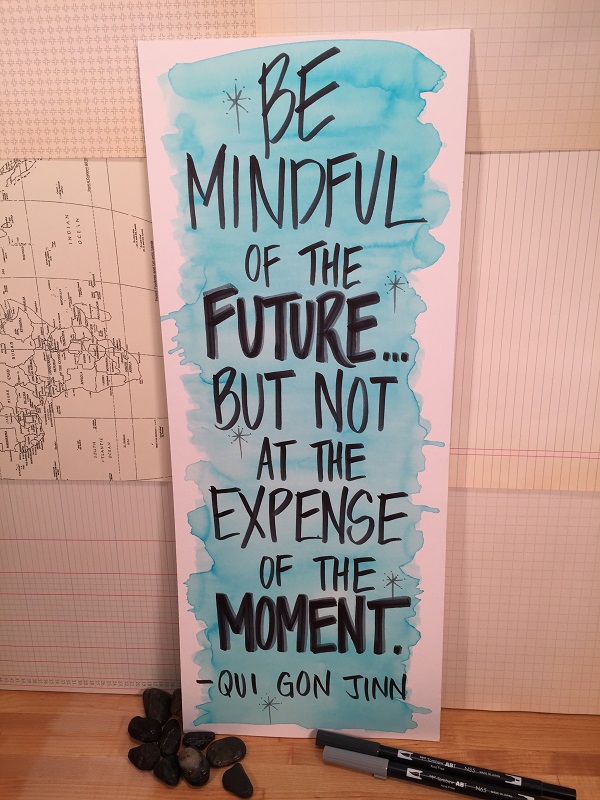 BE
MINDFUL
OF THE
FUTURE...
BUT NOT
AT THE
EXPENSE
OF THE
MOMENT.
-QUI GON JINN
INDIAN
OCEAN
SOUTH
ATLANTIC
OCEAN
ABT N55
ABT N65